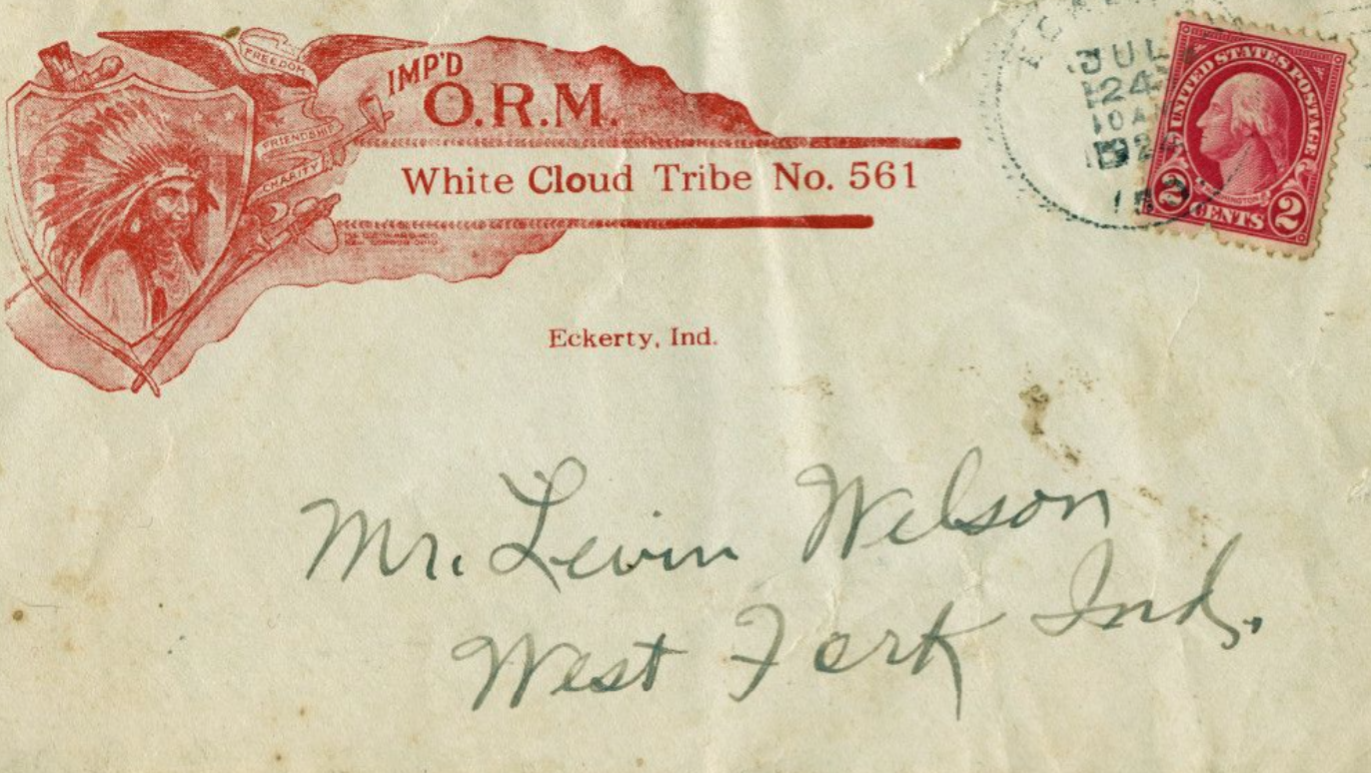 FREEDOM
FRIENDSHIP
CHARITY
IMP'D
O.R.M.
White Cloud Tribe No. 561
Eckerty, Ind.
JUL
24
10 A
UNITED STATES POSTAGE
2 CENTS 2
Mr. Levin Wilson
West Fork Ind.